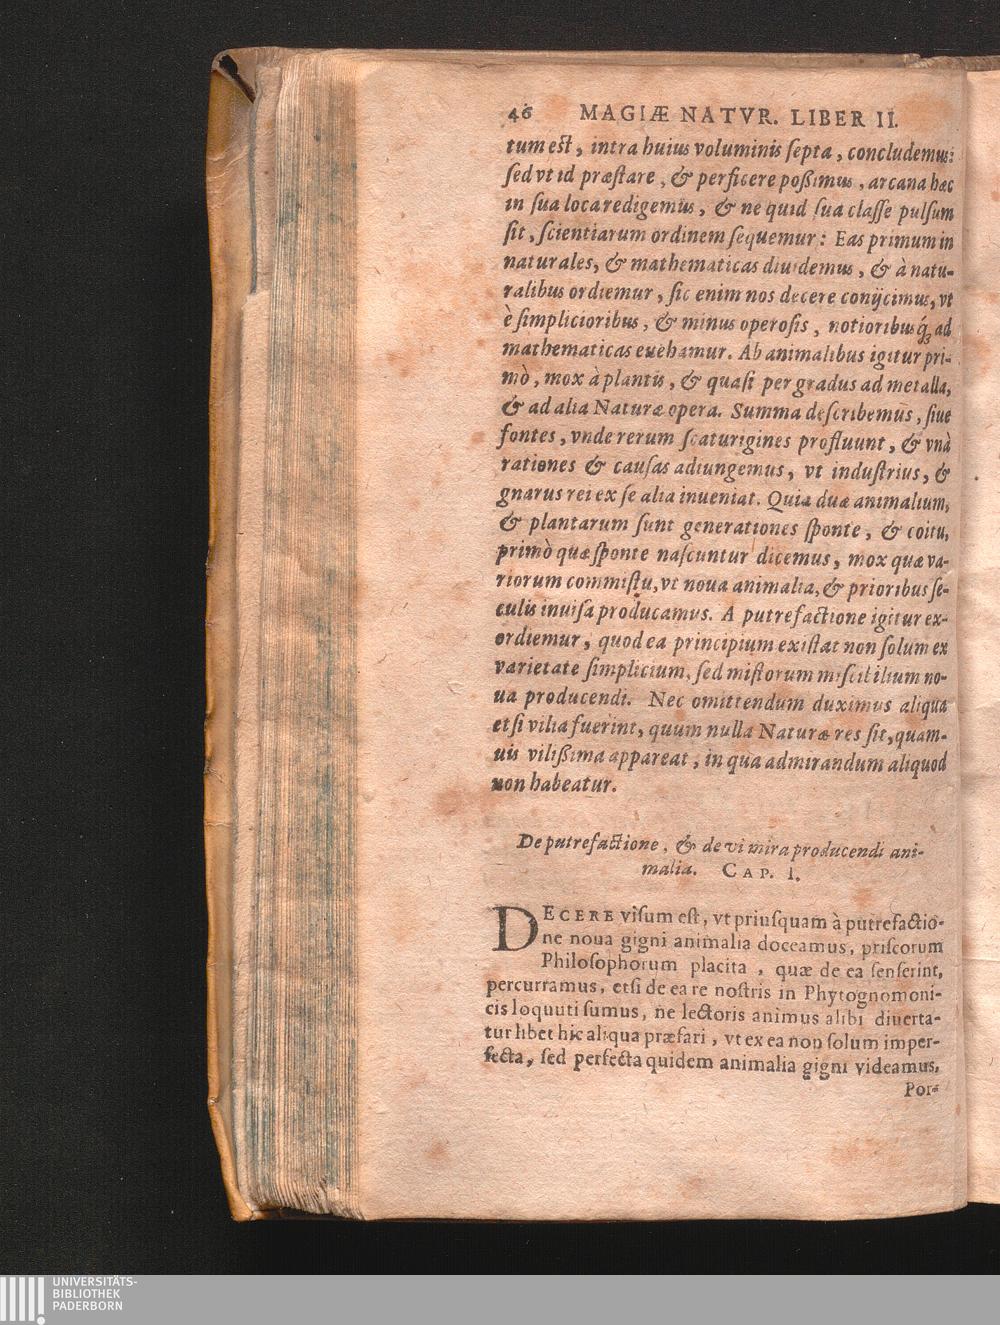 46 MAGIÆ NATVR. LIBER II.
tum eſt, intra huius voluminis ſepta, concludemus:
ſed vt id præſtare, & perficere poßimus, arcana hæc
in ſua loca redigemus, & ne quid ſua claſſe pulſum
ſit, ſcientiarum ordinem ſequemur: Eas primum in
naturales, & mathematicas diuidemus, & à natu-
ralibus ordiemur, ſic enim nos decere conijcimus, vt
è ſimplicioribus, & minus operoſis, notioribusq́ꝫ ad
mathematicas euehamur. Ab animalibus igitur pri-
mò, mox à plantis, & quaſi per gradus ad metalla,
& ad alia Naturæ opera. Summa deſcribemus, ſiue
fontes, vnde rerum ſcaturigines profluunt, & vnà
rationes & cauſas adiungemus, vt induſtrius, &
gnarus rei ex ſe alia inueniat. Quia duæ animalium,
& plantarum ſunt generationes ſponte, & coitu,
primò quæ ſponte naſcuntur dicemus, mox quæ va-
riorum commiſtu, vt noua animalia, & prioribus ſe-
culis inuiſa producamus. A putrefactione igitur ex-
ordiemur, quod ea principium exiſtat non ſolum ex
varietate ſimplicium, ſed miſtorum miſcibilium no-
ua producendi. Nec omittendum duximus aliqua
etſi vilia fuerint, quum nulla Naturæ res ſit, quam-
uis vilißima appareat, in qua admirandum aliquod
non habeatur.
De putrefactione, & de vi mira producendi ani-
malia. CAP. I.
DECERE viſum eſt, vt priuſquam à putrefactio-
ne noua gigni animalia doceamus, priſcorum
Philoſophorum placita, quæ de ea ſenſerint,
percurramus, etſi de ea re noſtris in Phytognomoni-
cis loquuti ſumus, ne lectoris animus alibi diuerta-
tur libet hic aliqua præfari, vt ex ea non ſolum imper-
fecta, ſed perfecta quidem animalia gigni videamus,
Por-
UNIVERSITÄTS-
BIBLIOTHEK
PADERBORN